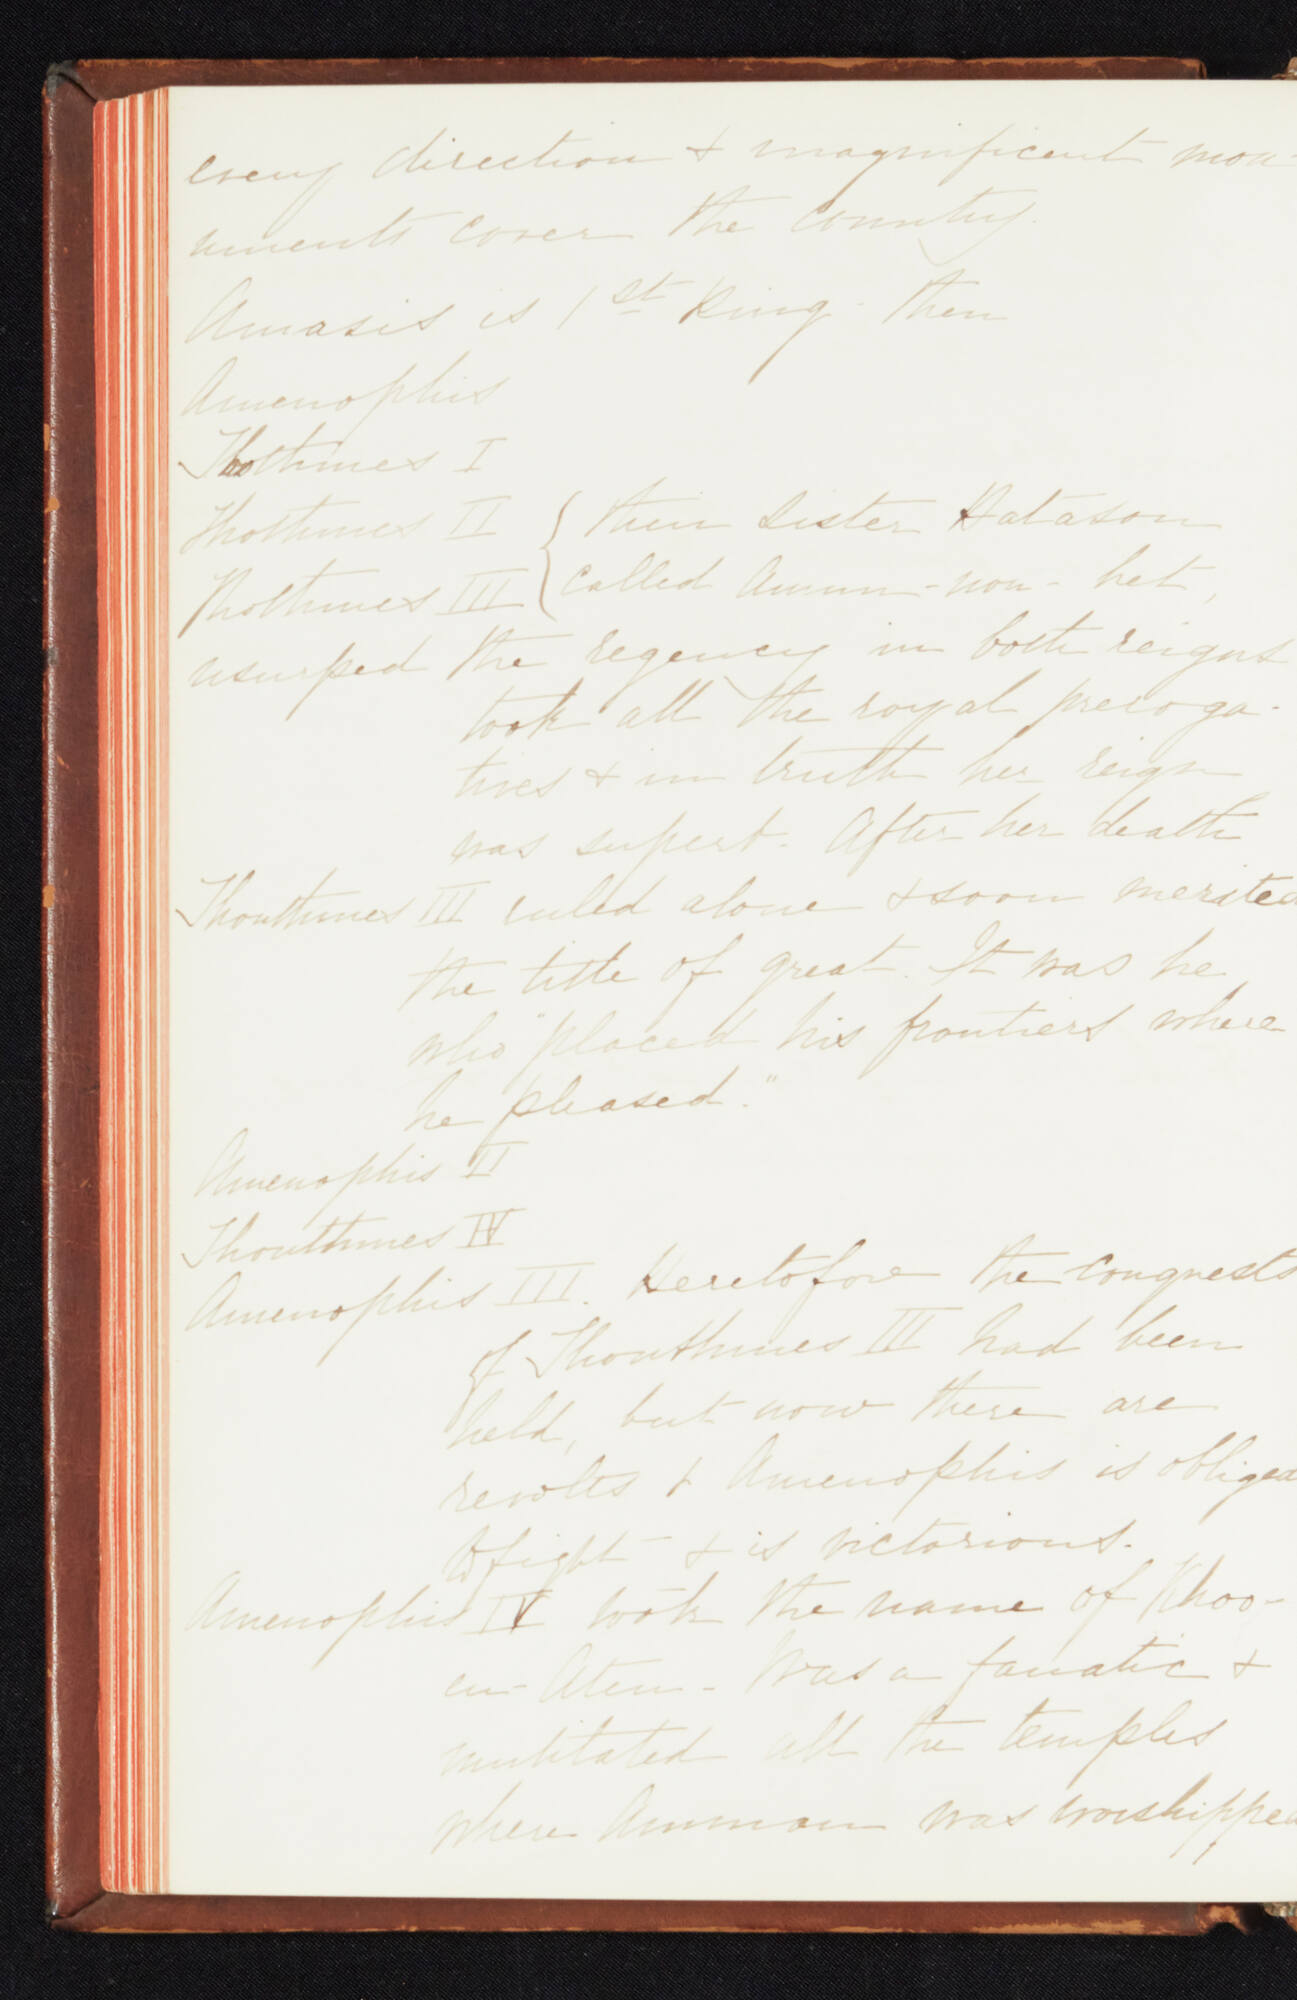 every direction & magnificent mon-
uments cover the country.
Amasis is 1st King - then
Amenophis
Thothmes I
Thothmes II { their sister Hatasou
Thothmes III { called Amun-nou-het,
usurped the regency in both reigns
took all the royal preroga-
tives & in truth her reign
was superb. After her death
Thouthmes III ruled alone & soon merited
the title of great. It was he
who "placed his frontiers where
he pleased."
Amenophis II
Thouthmes IV
Amenophis III. Heretofore the conquests
of Thouthmes III had been
held, but now there are
revolts & Amenophis is obliged
to fight & is victorious.
Amenophis IV took the name of Khoo-
en-Aten - Was a fanatic &
mutilated all the temples
where Ammon was worshipped